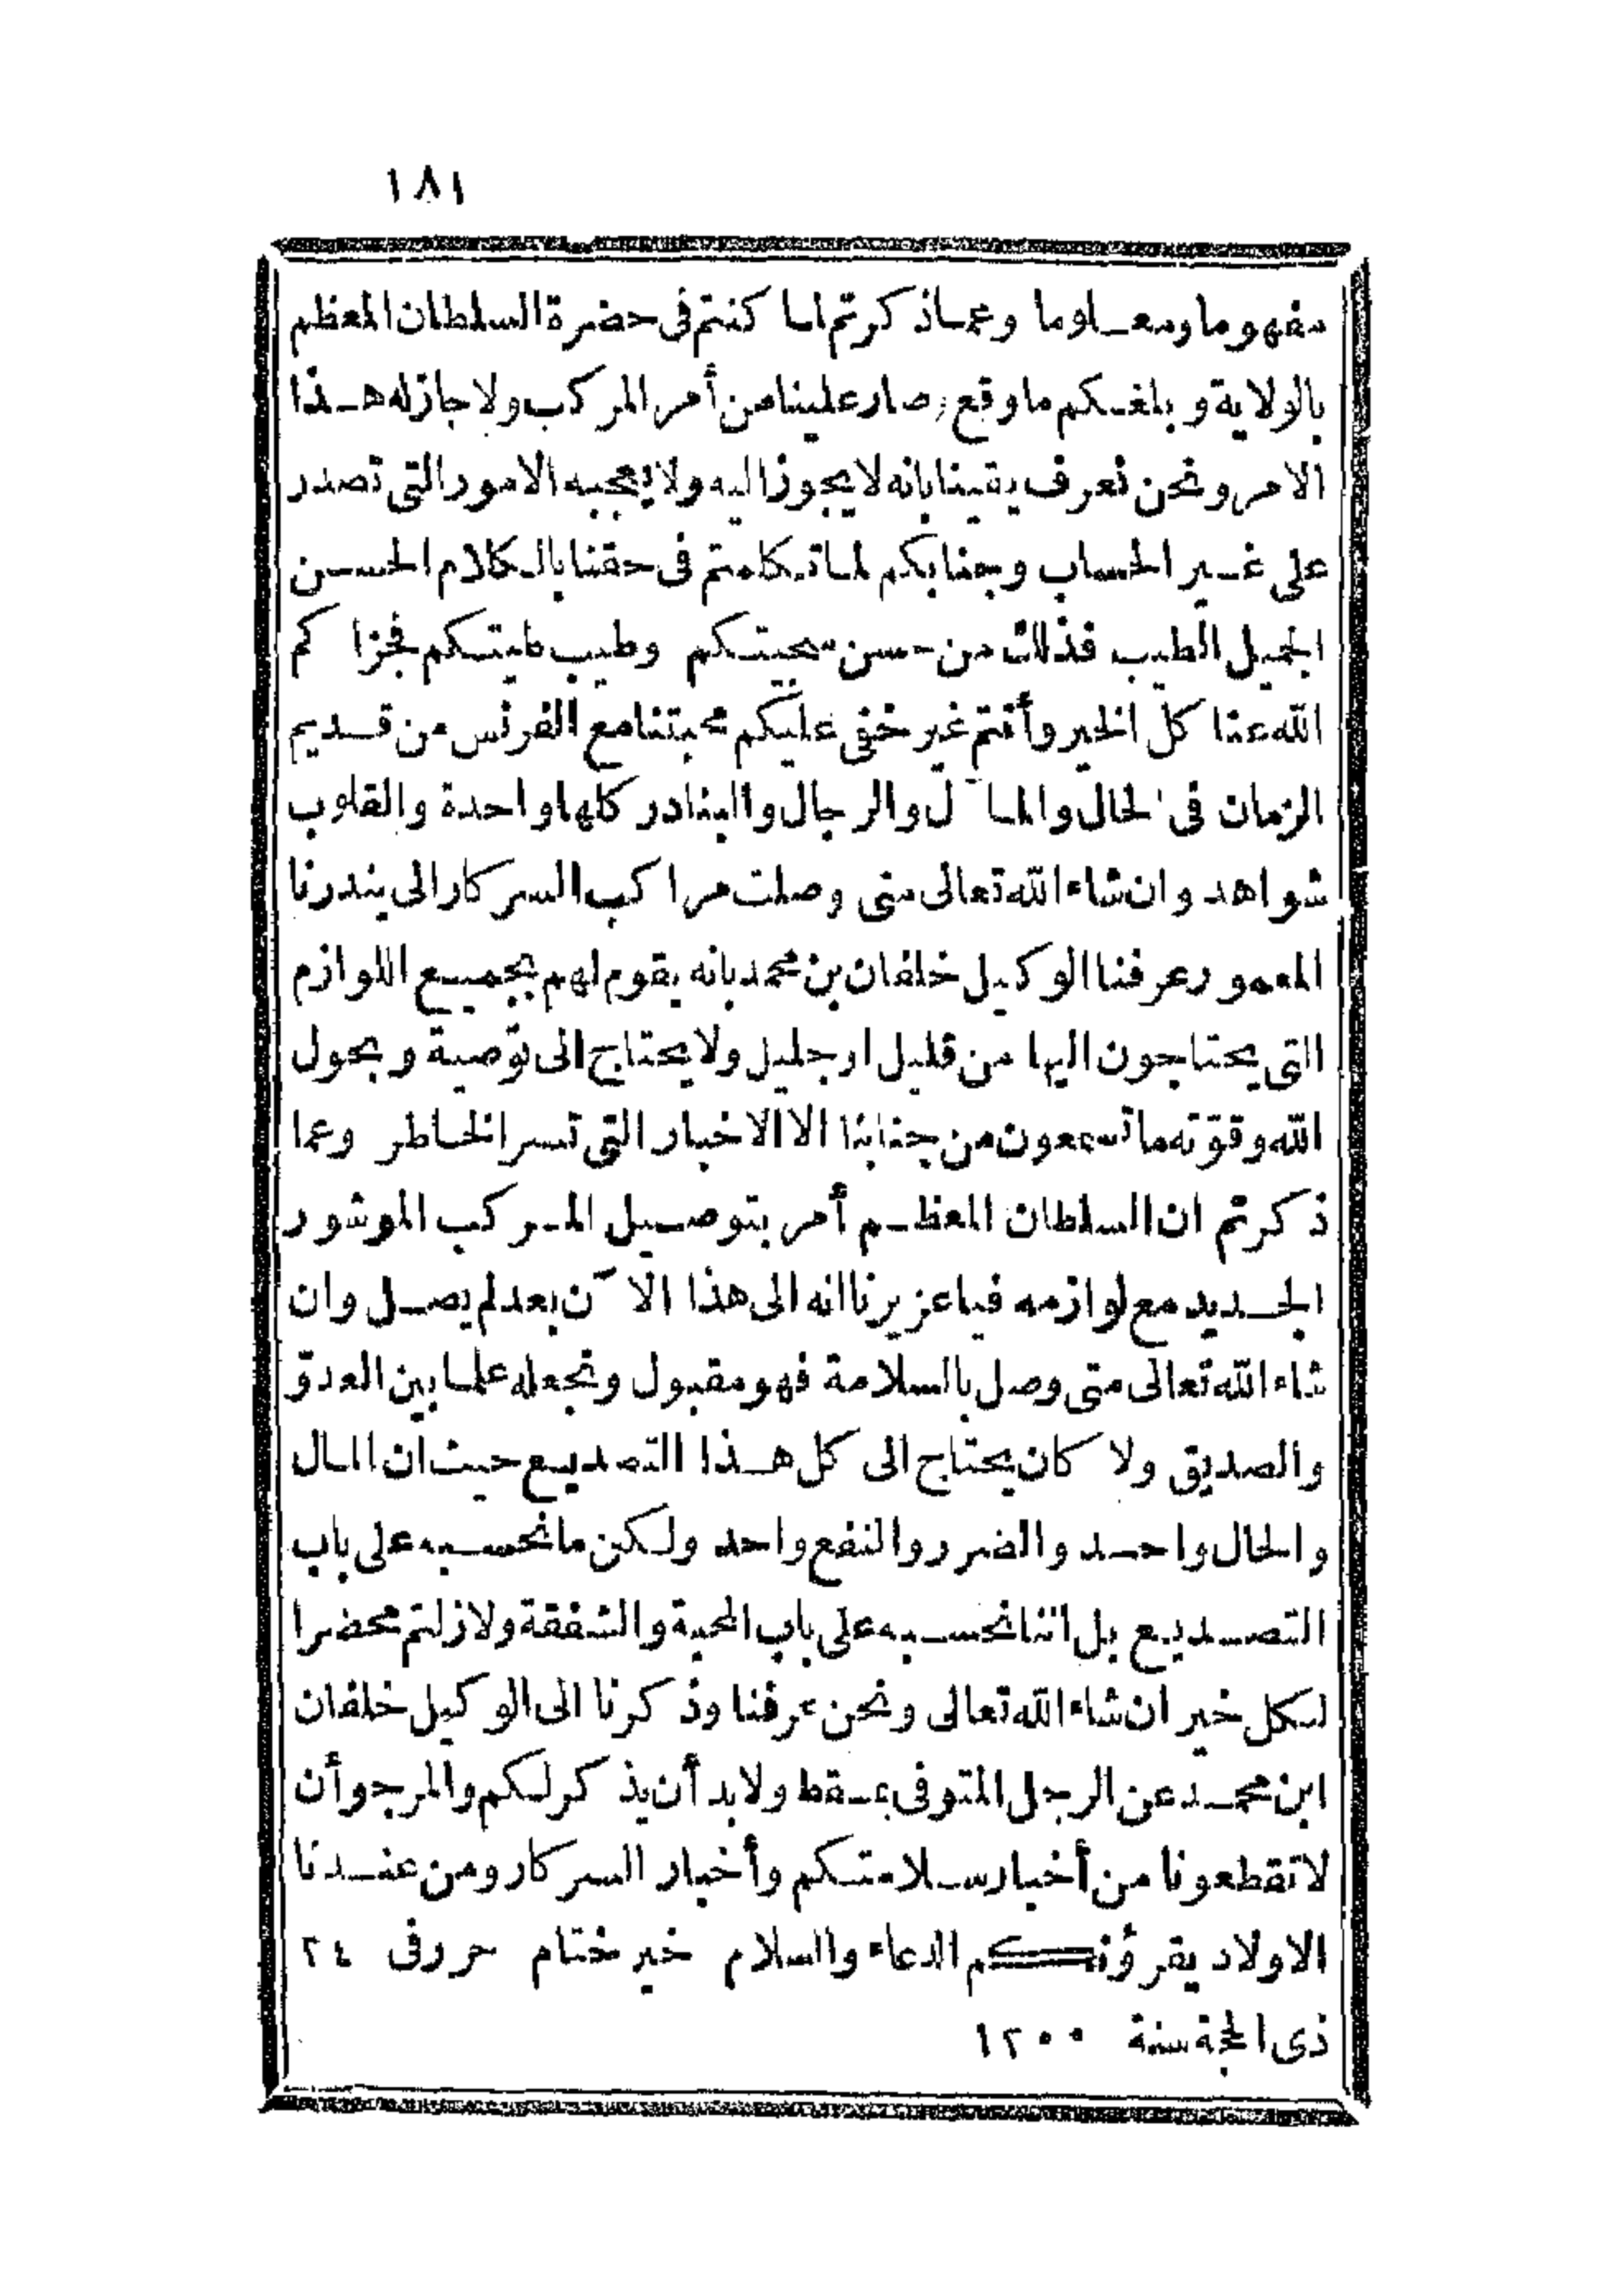 ١٨١
مفهوما ومعلوما وعما ذكرتم لما كنتم فى حضرة السلطان المعظم
بالولاية وبلغكم ما وقع وصار علينا من أمر المركب ولا جاز له هذا
الامر ونحن نعرف يقينا بانه لا يجوز اليه ولا يعجبه الامور التى تصدر
على غير الحساب وجنابكم لما تكلمتم فى حقنا بالكلام الحسن
الجميل الطيب فذلك من حسن سجيتكم وطيب طينتكم فجزاكم
الله عنا كل الخير وأنتم غير خفى عليكم محبتنا مع الفرنس من قديم
الزمان فى الحال والمآل والرجال والبنادر كلها واحدة والقلوب
شواهد وان شاء الله تعالى متى وصلت مراكب السركار الى بندرنا
المعمور عرفنا الوكيل خلفان بن محمد بانه يقوم لهم بجميع اللوازم
التى يحتاجون اليها من قليل او جليل ولا يحتاج الى توصية وبحول
الله وقوّته ما تسمعون من جنابنا الا الاخبار التى تسر الخاطر وعما
ذكرتم ان السلطان المعظم أمر بتوصيل المركب الموشور
الجديد مع لوازمه فيا عزيزنا انه الى هذا الآن بعد لم يصل وان
شاء الله تعالى متى وصل بالسلامة فهو مقبول ونجعله علما بين العدوّ
والصديق ولا كان يحتاج الى كل هذا التصديع حيث ان المال
والحال واحد والضرر والنفع واحد ولكن ما نحسبه على باب
التصديع بل اننا نحسبه على باب المحبة والشفقة ولا زلتم محضرا
لكل خير ان شاء الله تعالى ونحن عرفنا وذكرنا الى الوكيل خلفان
ابن محمد عن الرجل المتوفى بمسقط ولا بد أن يذكر لكم والمرجو أن
لا تقطعونا من أخبار سلامتكم وأخبار السركار ومن عندنا
الاولاد يقرؤنكم الدعاء والسلام خير ختام حرر فى ٢٤
ذى الحجة سنة ١٢٠٠